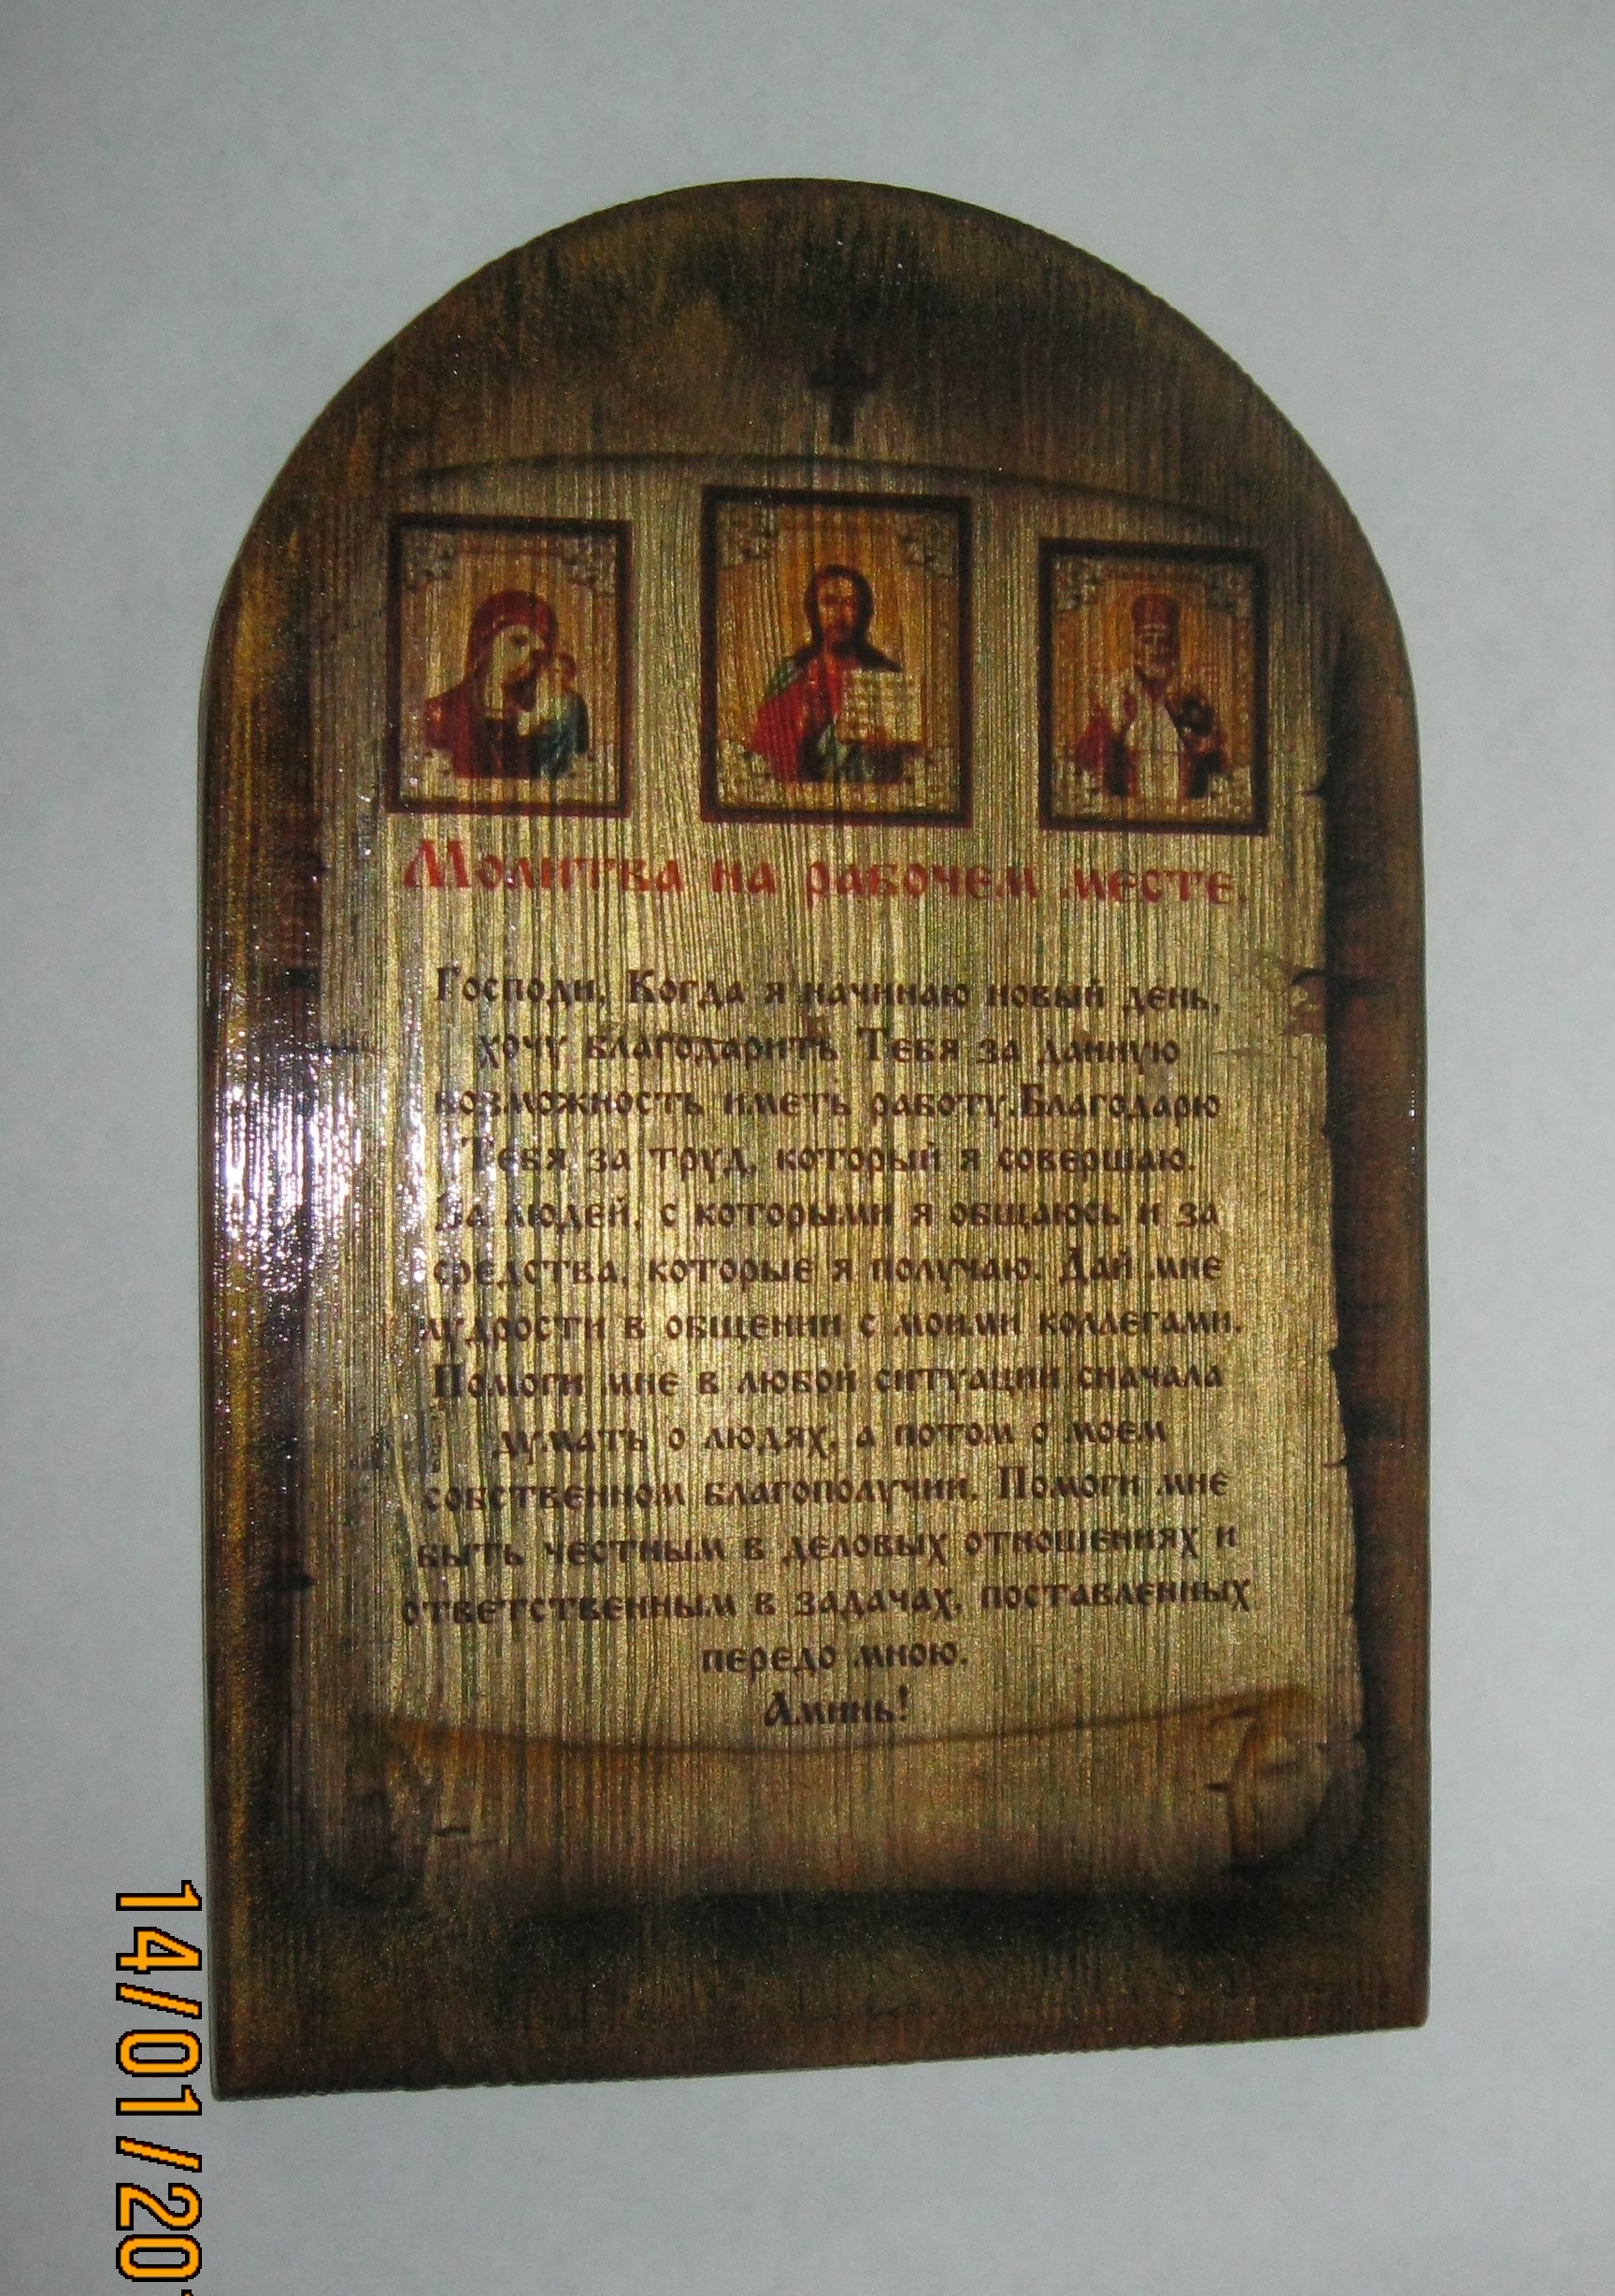 Молитва на рабочем месте.
Господи, Когда я начинаю новый день,
хочу благодарить Тебя за данную
возможность иметь работу.Благодарю
Тебя за труд, который я совершаю.
За людей, с которыми я общаюсь и за
средства, которые я получаю. Дай мне
мудрости в общении с моими коллегами.
Помоги мне в любой ситуации сначала
думать о людях, а потом о моем
собственном благополучии. Помоги мне
быть честным в деловых отношениях и
ответственным в задачах, поставленных
передо мною.
Аминь!
14/01/20